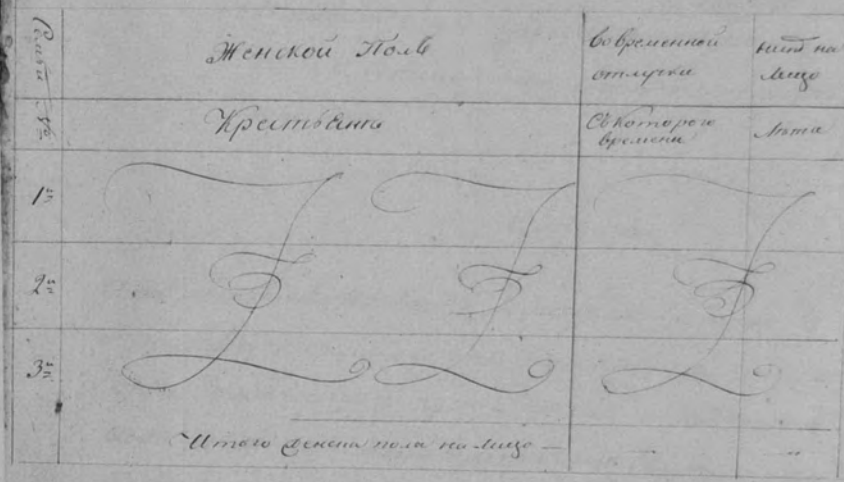 Семьи №
Женской Полъ
во временной
отлучке
ныне на
лицо
Крестьяне
Съ которого
времени
Лѣта
1й
2й
3й
Итого женска пола на лицо —